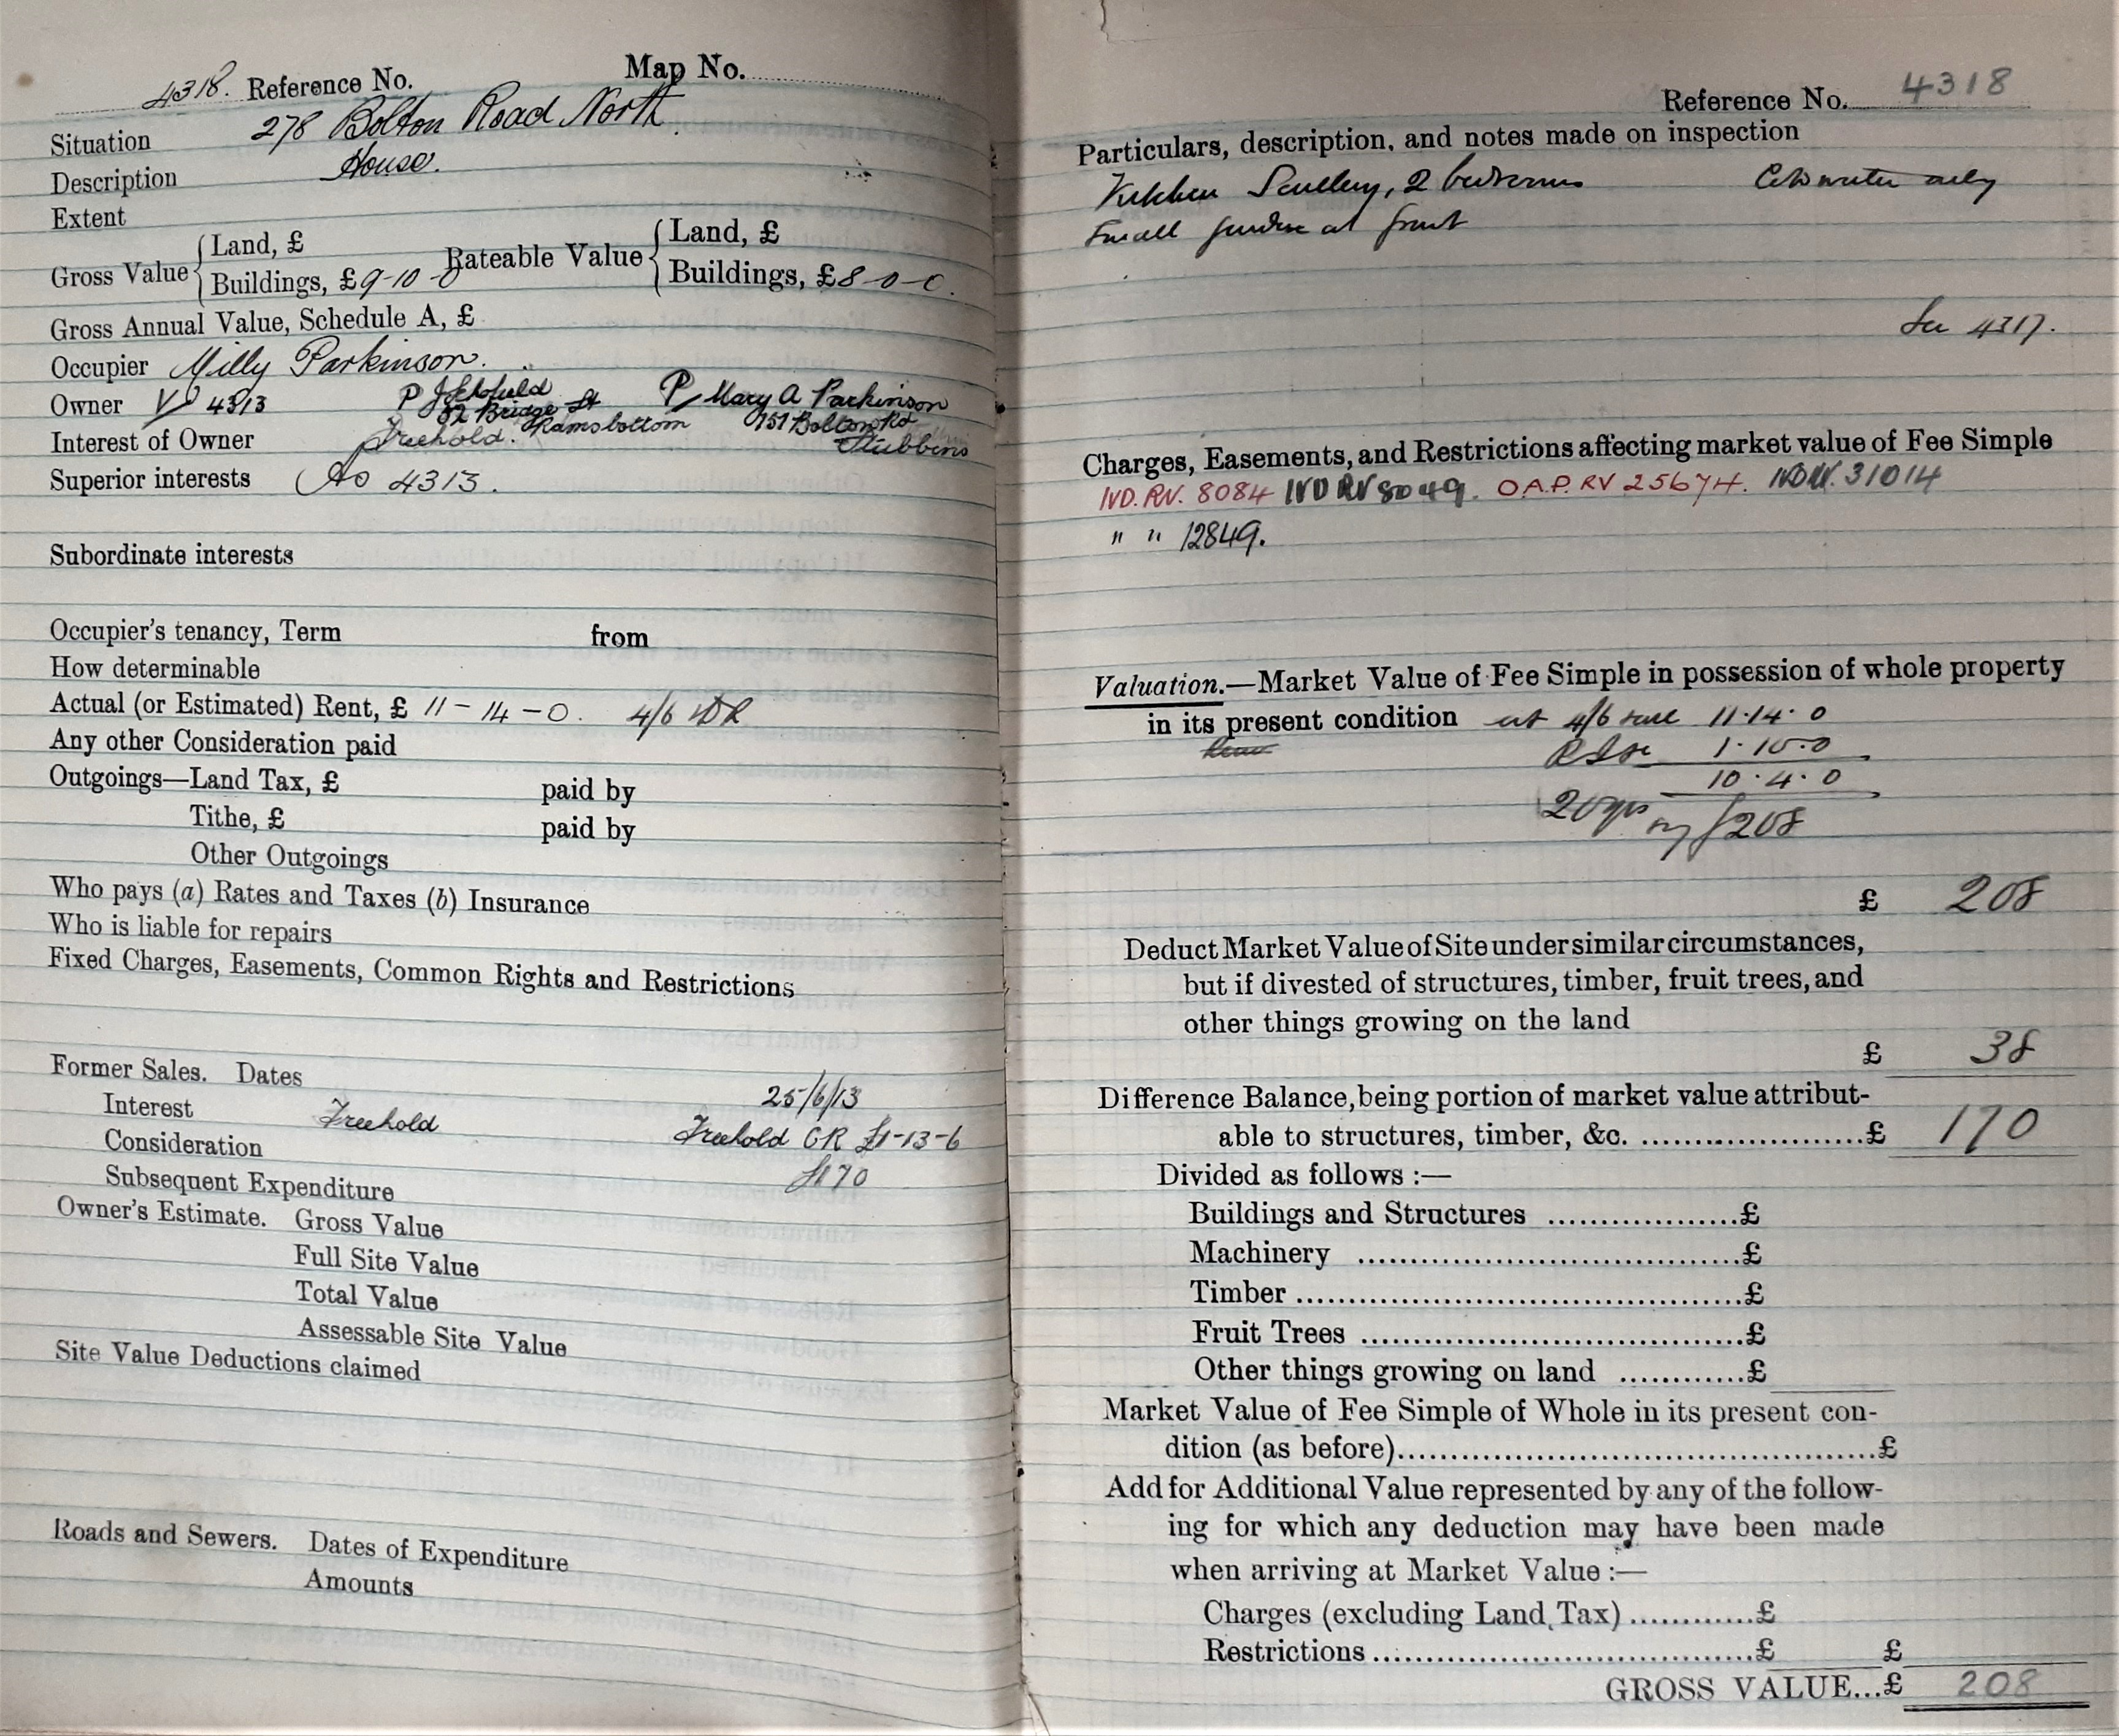 4318. Reference No. Map No.
Situation 278 Bolton Road North.
Description House.
Extent
Gross Value { Land, £ Rateable Value { Land, £
Buildings, £ 9-10-0 Buildings, £ 8-0-0.
Gross Annual Value, Schedule A, £
Occupier Milly Parkinson.
Owner 4313 P J Schofield P Mary A Parkinson
32 Bridge St Ramsbottom 151 Bolton Rd
Interest of Owner Freehold. Stubbins
Superior interests As 4313.
Subordinate interests
Occupier's tenancy, Term from
How determinable
Actual (or Estimated) Rent, £ 11-14-0. 4/6
Any other Consideration paid
Outgoings—Land Tax, £ paid by
Tithe, £ paid by
Other Outgoings
Who pays (a) Rates and Taxes (b) Insurance
Who is liable for repairs
Fixed Charges, Easements, Common Rights and Restrictions
Former Sales. Dates 25/6/13
Interest Freehold Freehold CR £1-13-6
Consideration £170
Subsequent Expenditure
Owner's Estimate. Gross Value
Full Site Value
Total Value
Assessable Site Value
Site Value Deductions claimed
Roads and Sewers. Dates of Expenditure
Amounts
Reference No. 4318
Particulars, description, and notes made on inspection
Kitchen Scullery, 2 bedrooms water only
Small garden at front
See 4317.
Charges, Easements, and Restrictions affecting market value of Fee Simple
IVD. RV. 8084 IVD RV 8049. O.A.P. RV 25674. 31014
" " 12849.
Valuation.—Market Value of Fee Simple in possession of whole property
in its present condition at 4/6 11.14.0
1.10.0
10.4.0
20 yrs £208
£ 208
Deduct Market Value of Site under similar circumstances,
but if divested of structures, timber, fruit trees, and
other things growing on the land
£ 38
Difference Balance, being portion of market value attribut-
able to structures, timber, &c. ......................£ 170
Divided as follows :—
Buildings and Structures ...................£
Machinery ......................................£
Timber ............................................£
Fruit Trees ......................................£
Other things growing on land ............£
Market Value of Fee Simple of Whole in its present con-
dition (as before)................................................£
Add for Additional Value represented by any of the follow-
ing for which any deduction may have been made
when arriving at Market Value :—
Charges (excluding Land Tax) ............£
Restrictions ......................................£ £
GROSS VALUE...£ 208